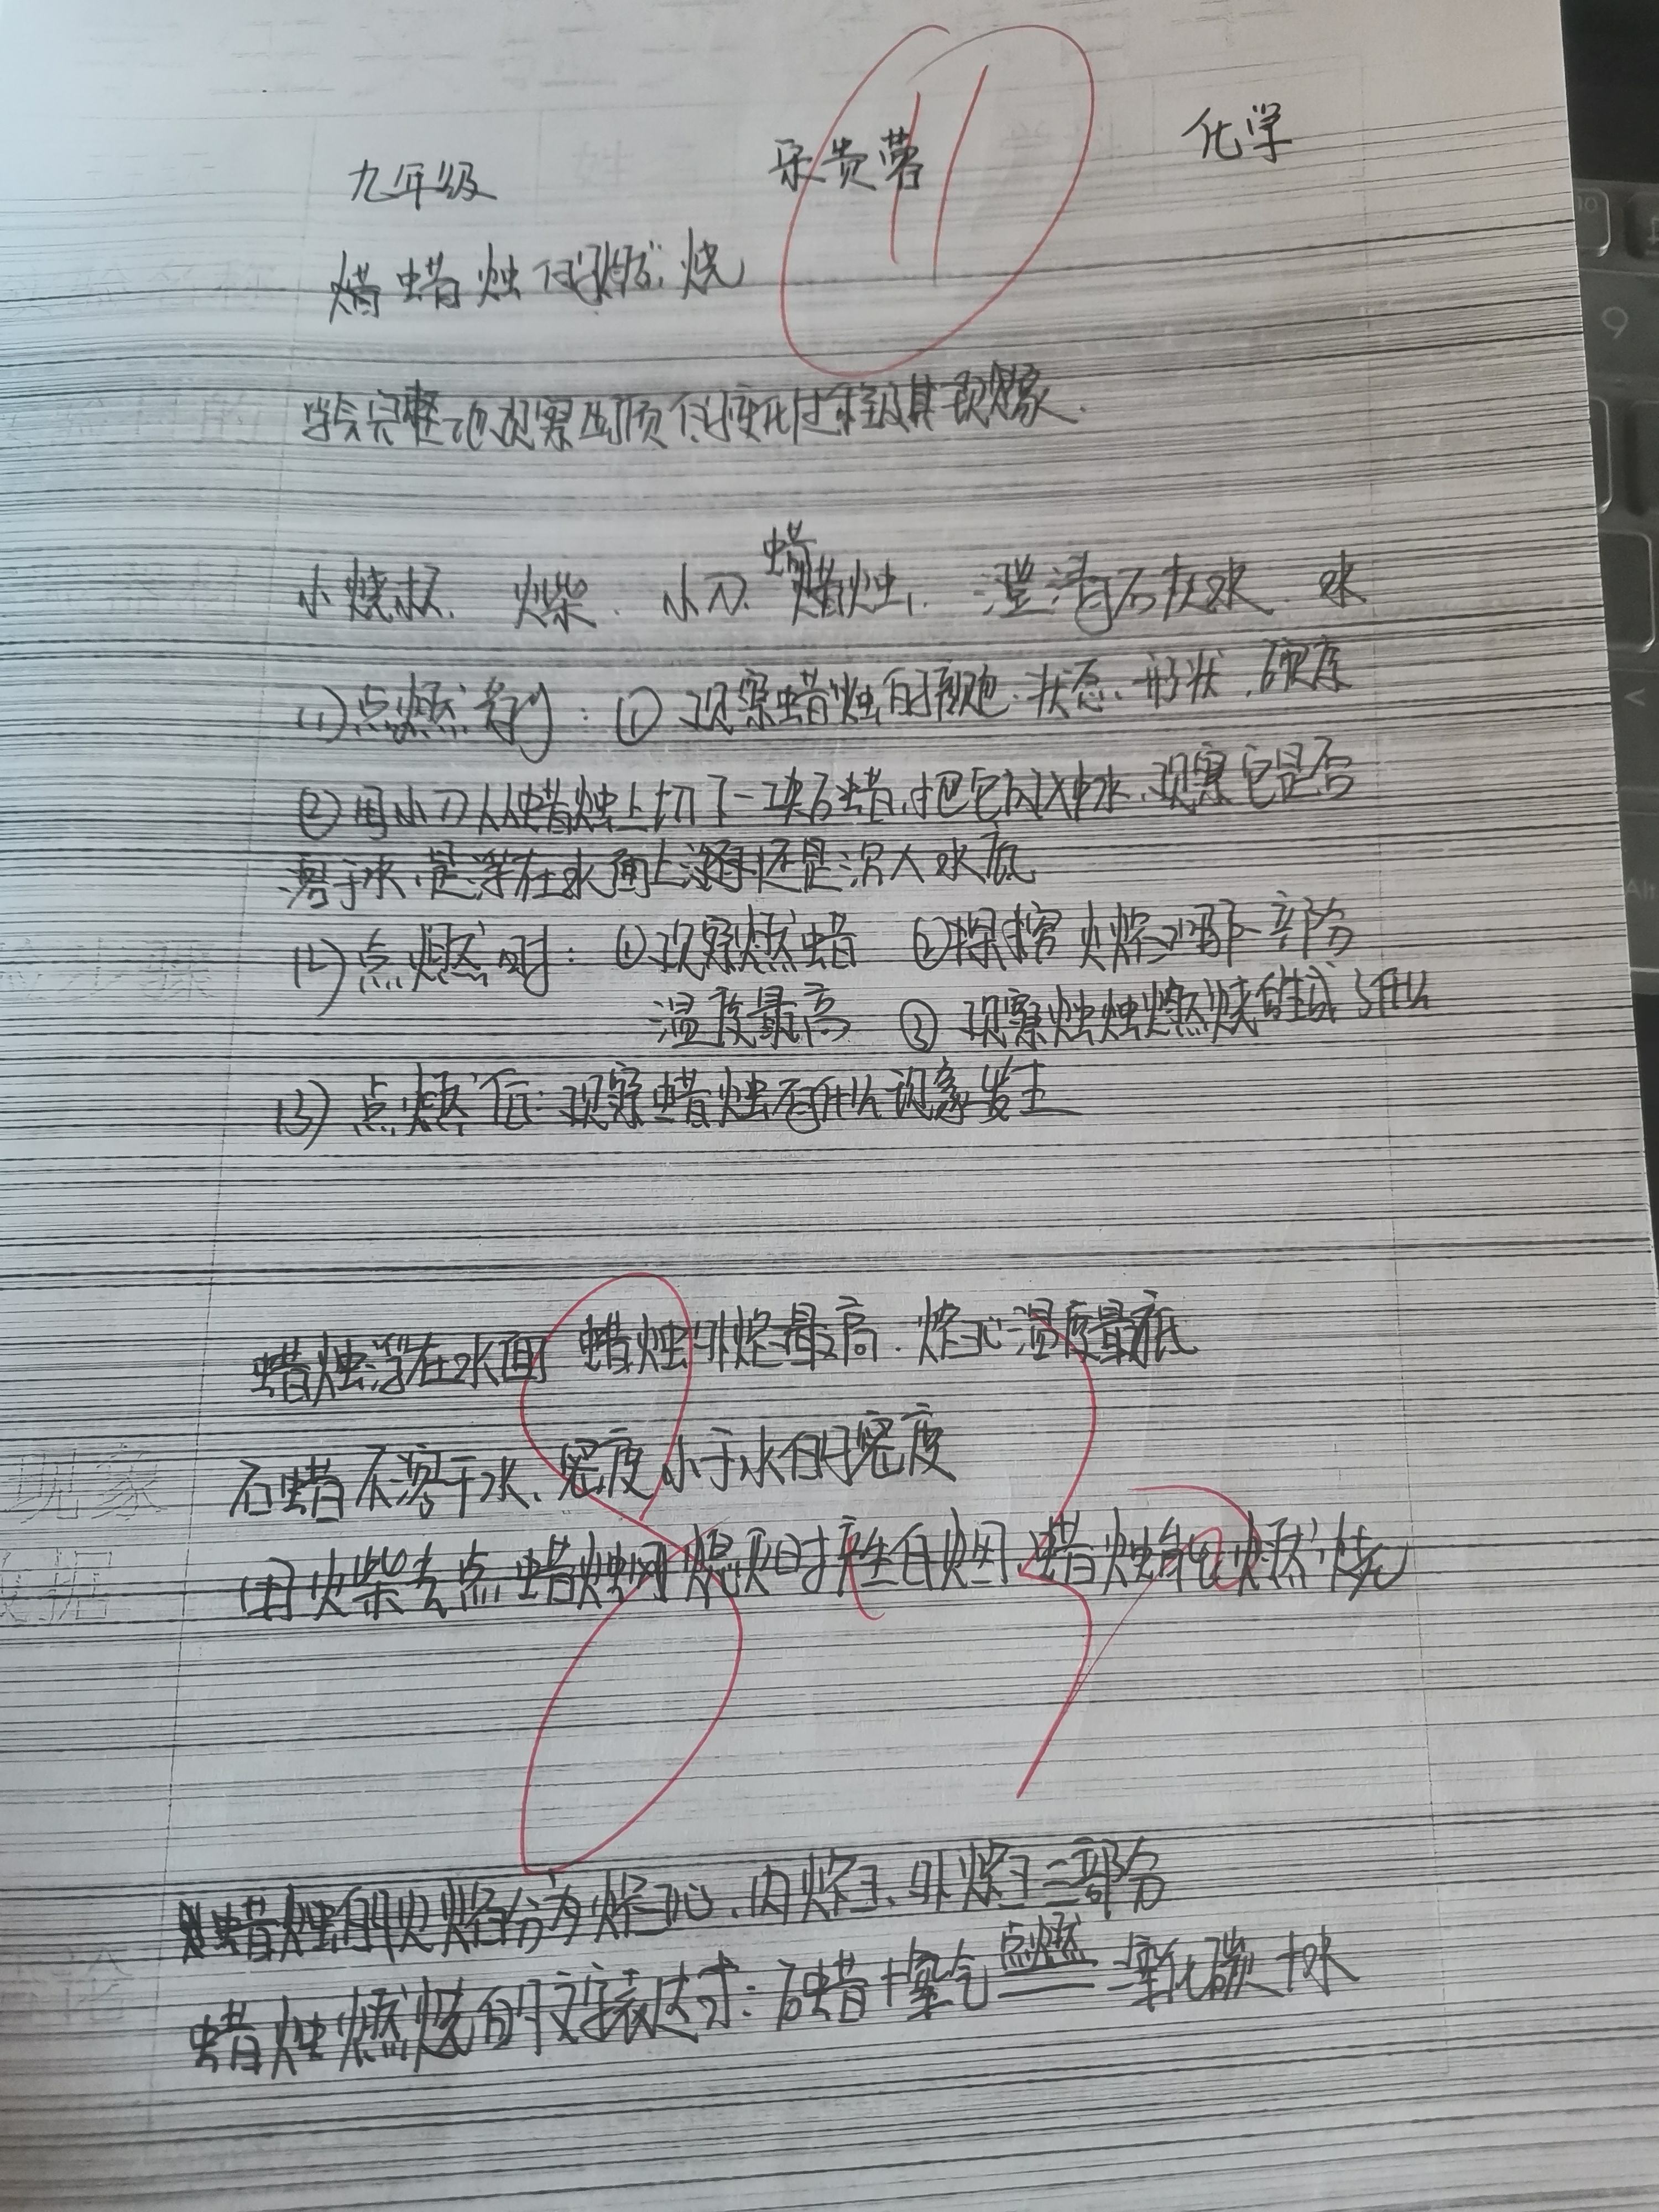 九年级 化学
11
蜡烛的燃烧
学会完整地观察物质的变化过程及其现象.
小烧杯. 火柴. 小刀. 蜡烛. 澄清石灰水. 水
(1)点燃前: ① 观察蜡烛的颜色.状态.形状.硬度
②用小刀从蜡烛上切下一块石蜡,把它放入水,观察它是否
溶于水,是浮在水面上还是沉入水底
(2)点燃时: ①观察燃蜡 ②探究火焰哪一部分
温度最高 ③观察蜡烛燃烧生成什么
(3)点燃后:观察蜡烛有什么现象发生
蜡烛浮在水面 蜡烛外焰最高.焰心温度最底
石蜡不溶于水、密度小于水的密度
现象
用火柴去点蜡烛刚熄灭时产生白烟,蜡烛能燃烧
数据
83
蜡烛的火焰分为焰心、内焰、外焰三部分
蜡烛燃烧的文字表达式:石蜡+氧气 点燃 二氧化碳+水